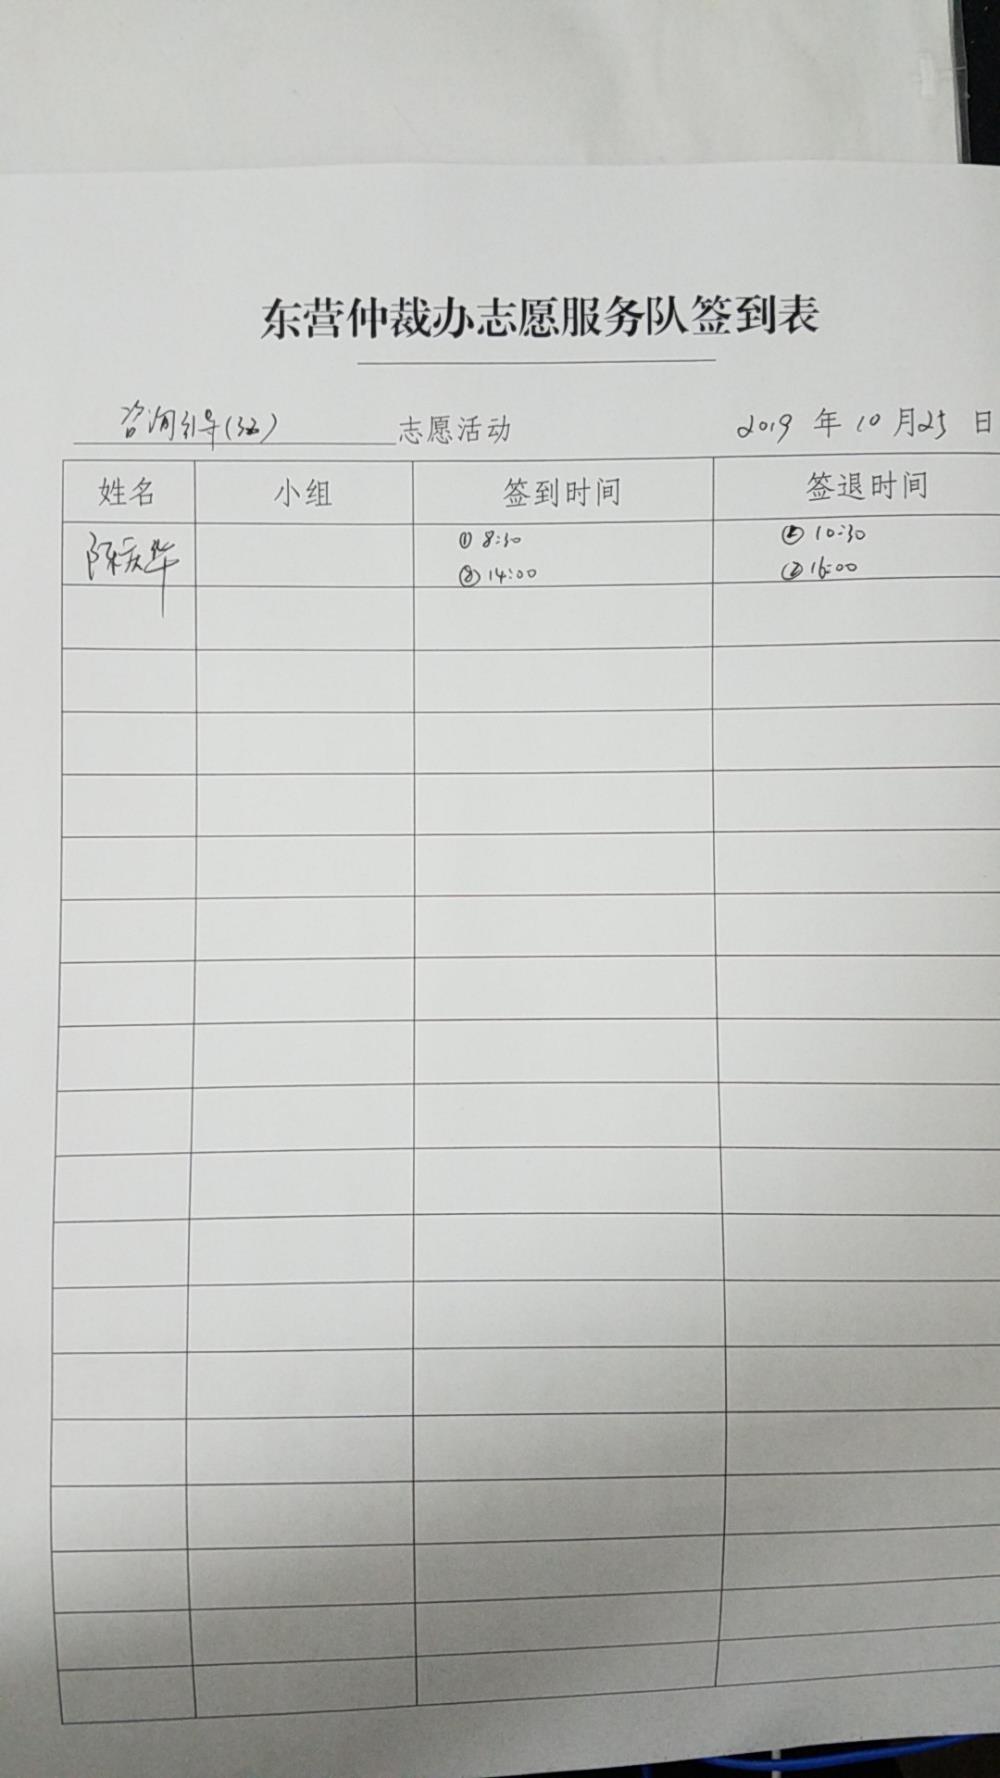 东营仲裁办志愿服务队签到表
咨询引导(32) 志愿活动 2019 年 10 月 25 日
姓名 小组 签到时间 签退时间
陈庆华 ① 8:30 ① 10:30
② 14:00 ② 16:00